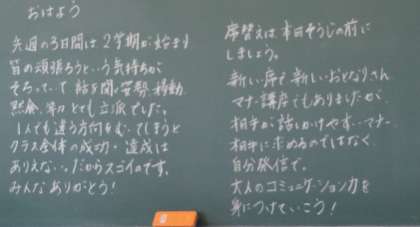 おはよう
先週の3日間は2学期が始まり
皆の頑張ろうという気持ちが
そろって、話を聞く姿勢、移動
黙食、等々とても立派でした。
1人でも違う方向をむいてしまうと
クラス全体の成功・達成は
ありえない。だからスゴイのです。
みんなありがとう!
席替えは本日そうじの前に
しましょう。
新しい席で新しいおとなりさん
マナー講座でもありましたが、
相手が話しかけやすいマナー
相手に求めるのではなく、
自分発信で。
大人のコミュニケーション力を
身につけていこう!